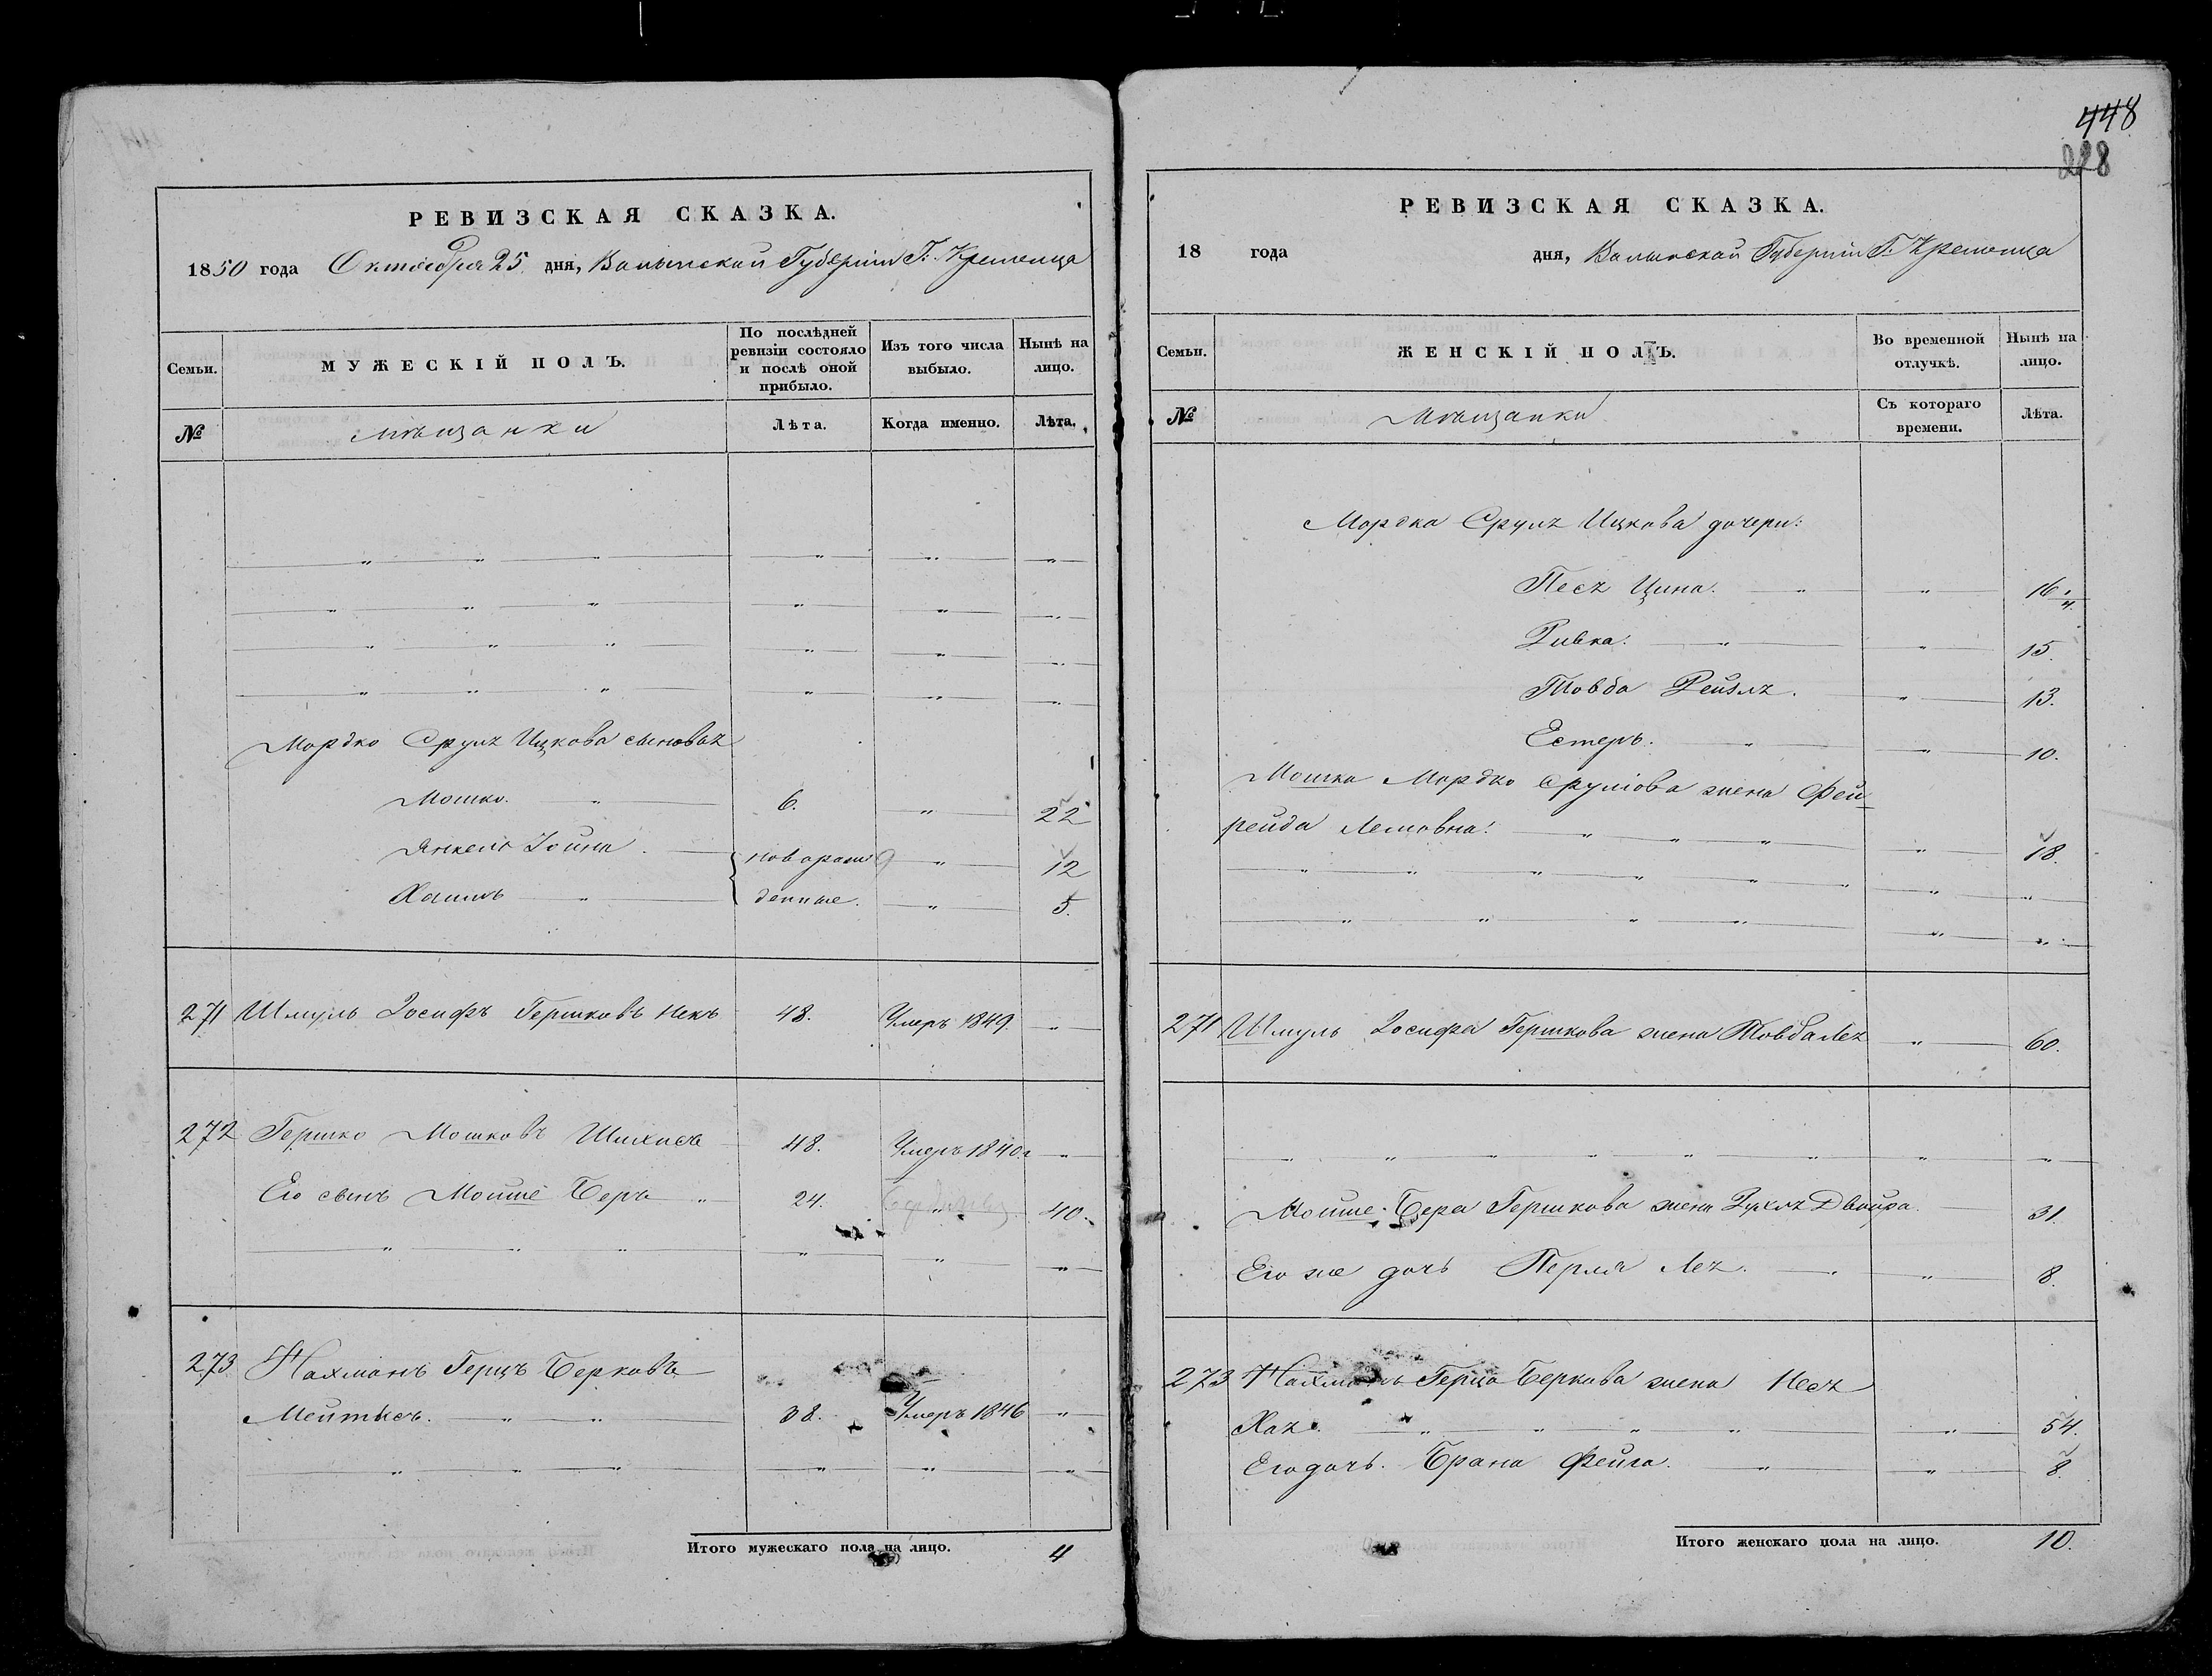 448
228
РЕВИЗСКАЯ СКАЗКА.
1850 года Октября 25 дня, Волынской Губерніи Г. Кременца
Семьи.
МУЖЕСКІЙ ПОЛЪ.
По послѣдней ревизіи состояло и послѣ оной прибыло.
Изъ того числа выбыло.
Нынѣ на лицо.
№
Мѣщанки
Лѣта.
Когда именно.
Лѣта.
Мордко Срулъ Ицкова сыновья
Мошко. 6. 22
Янкель Іойна новорож 12
Хаимъ денные. 5.
271 Шмуль Іосифъ Гершковъ 48. Умеръ 1849.
272 Гершко Мошковъ 48. Умеръ 1840 г
Его сынъ Мошие Беръ 24. 40.
273 Нахманъ Герцъ Берковъ
38. Умеръ 1846
Итого мужескаго пола на лицо. 4
РЕВИЗСКАЯ СКАЗКА.
18 года дня, Волынской Губерніи Г. Кременца
Семьи.
ЖЕНСКІЙ ПОЛЪ.
Во временной отлучкѣ.
Нынѣ на лицо.
№
Мѣщанки
Съ котораго времени.
Лѣта.
Мордка Срулъ Ицкова дочери:
Песъ Цина. 16 1/4
Ривка. 15.
Товба Рейзлъ. 13.
Естеръ. 10.
Мошка Мордко Срулiова жена Фей
рейда 18.
271 Шмуль Іосифа Гершкова жена Товба Леъ 60.
Мошие Бера Гершкова жена Двойра. 31.
Его же дочь Перля Леъ. 8.
273 Нахманъ Герца Беркова жена Несъ
Хаъ. 54.
Его дочь. Брана Фейга. 8.
Итого женскаго пола на лицо. 10.